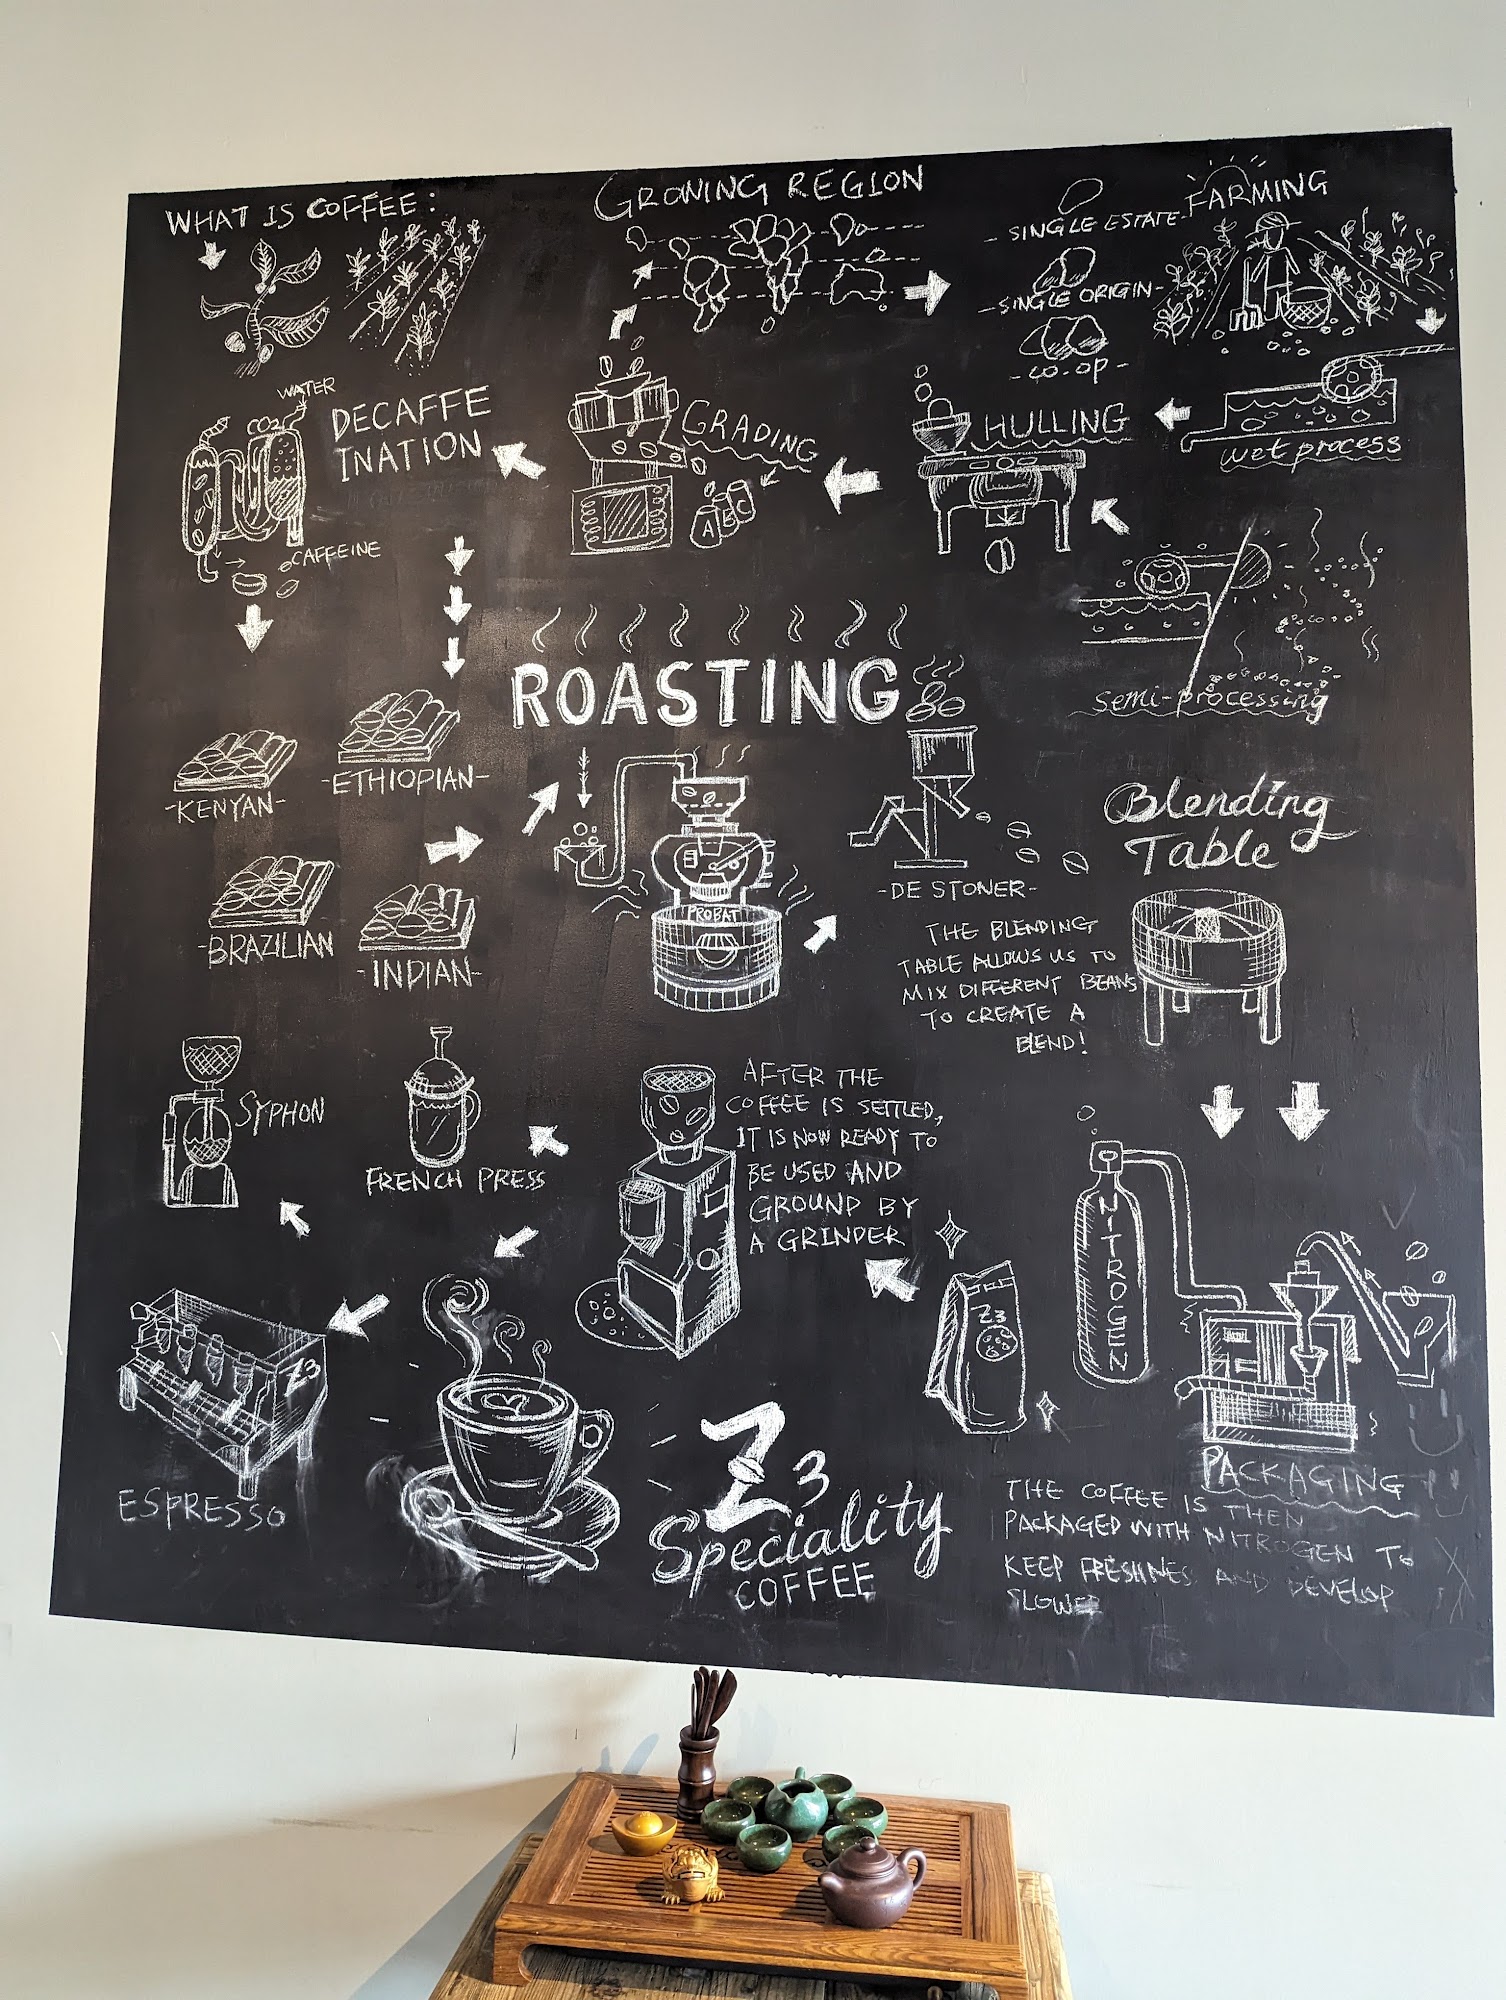 WHAT IS COFFEE:
GROWING REGION
- SINGLE ESTATE-
FARMING
-SINGLE ORIGIN-
-CO-OP-
WATER
CO2
DECAFFE
INATION
CAFFEINE
GRADING
A B C
HULLING
wet process
semi-processing
ROASTING
-KENYAN-
-ETHIOPIAN-
-BRAZILIAN
-INDIAN-
PROBAT
-DE STONER-
Blending
Table
THE BLENDING
TABLE ALLOWS US TO
MIX DIFFERENT BEANS
TO CREATE A
BLEND!
SYPHON
FRENCH PRESS
AFTER THE
COFFEE IS SETTLED,
IT IS NOW READY TO
BE USED AND
GROUND BY
A GRINDER
NITROGEN
Z3
Z3
ESPRESSO
Z3
Speciality
COFFEE
PACKAGING
THE COFFEE IS THEN
PACKAGED WITH NITROGEN TO
KEEP FRESHNES AND DEVELOP
SLOWER